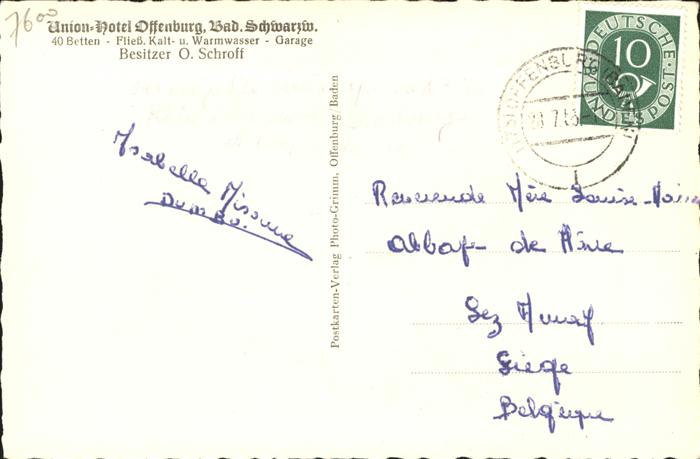 7600
Union-Hotel Offenburg, Bad. Schwarzw.
40 Betten - Fließ. Kalt- u. Warmwasser - Garage
Besitzer O. Schroff
Isabelle Misonne
Dumbo.
Postkarten-Verlag Photo-Grimm, Offenburg, Baden
DEUTSCHE
10
BUNDESPOST
OFFENBURG
Reverende Mère Louise-Marie
Abbaye de
Lez
Liege
Belgique